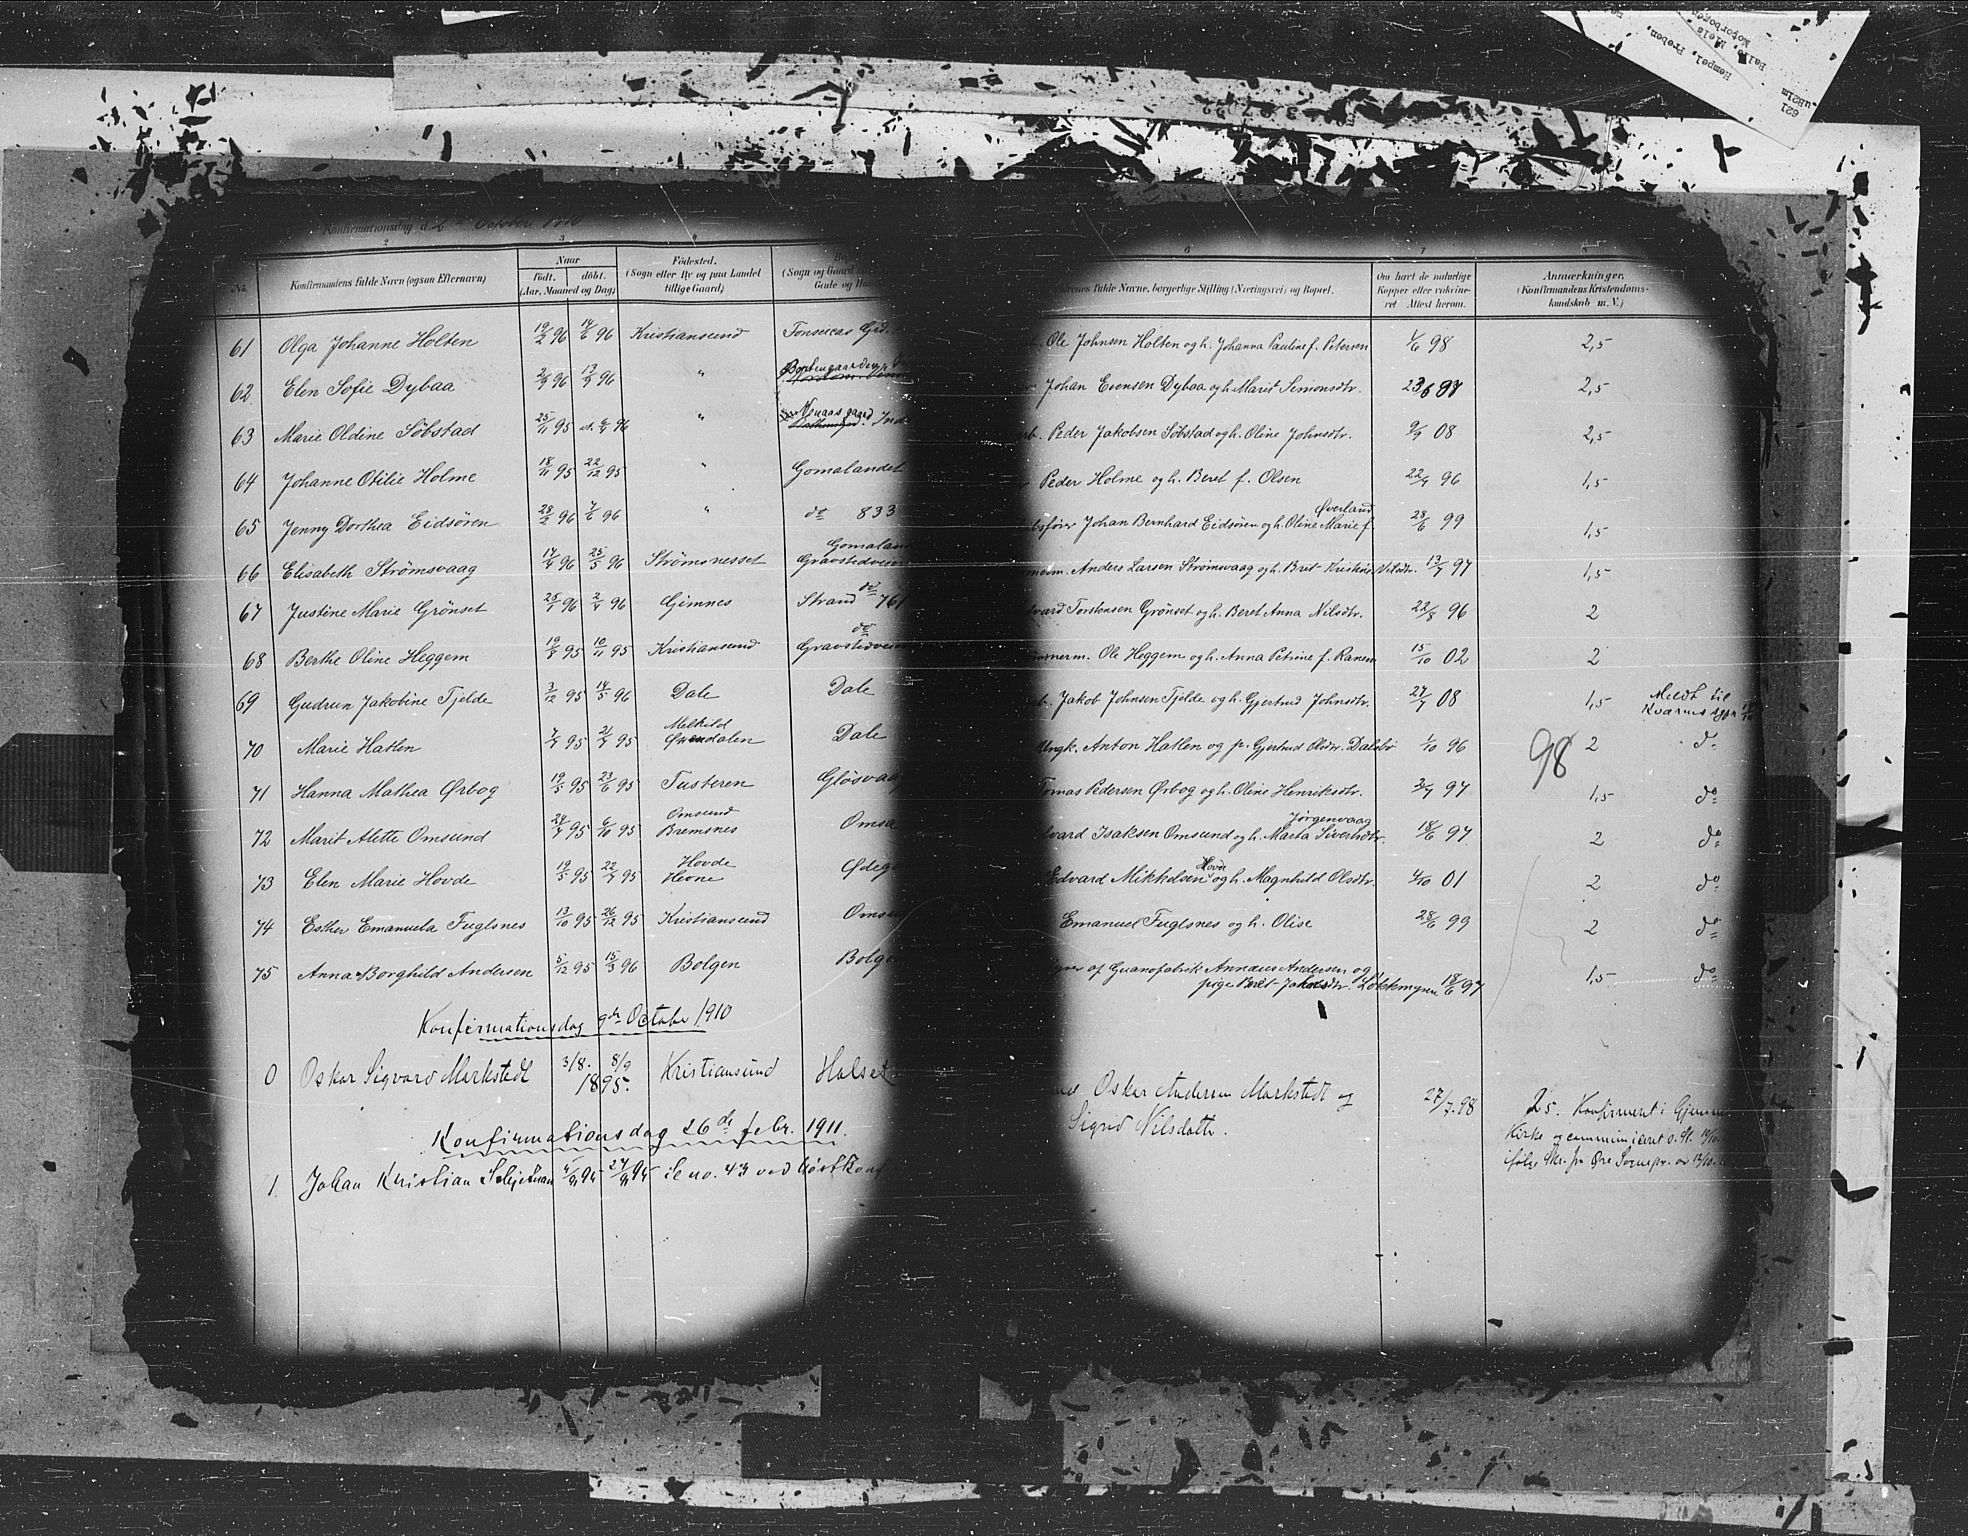 Konfirmationsdag d. October 1910
2 3 4
No. Konfirmandens fulde Navn (ogsaa Efternavn) Naar födt. döbt. (Aar, Maaned og Dag) Födested. (Sogn eller By og paa Landet tillige Gaard) (Sogn og Gaard Gade og
6 7
fulde Navne, borgerlige Stilling (Næringsvei) og Bopæl. Om havt de naturlige Kopper eller vakcineret Attest herom. Anmærkninger. (Konfirmandens Kristendomskundskab m. V.)
61 Olga Johanne Holten 19/2 96 14/6 96 Kristiansund Ole Johnsen Holten og h. Johanna Pauline f. Petersen 1/6 98 2,5
62 Elen Sofie Dybaa 13/9 96 " Johan Evensen Dybaa og h. Marit Simonsdtr. 2,5
63 Marie Oldine Söbstad 25/11 95 96 " Peder Jakobsen Söbstad og h. Oline Johnsdtr. 9/9 08 2,5
64 Johanne Otilie Holme 18/11 95 22/12 95 " Gomalandet Peder Holme og h. Beret f. Olsen 22/9 96 1,5
65 Jenny Dorthea Eidsören 28/2 96 7/6 96 " do 833 Johan Bernhard Eidsören og h. Oline Marie f. Øverland 28/6 99 1,5
66 Elisabeth Strömsvaag 14/4 96 25/5 96 Strömsnesset Anders Larsen Strömsvaag og h. Brit Kristine Nilsdtr. 13/7 97 1,5
67 Justine Marie Grönset 25/1 96 2/4 96 Gimnes Strand do 761 Torstensen Grönset og h. Beret Anna Nilsdtr. 22/8 96 2
68 Berthe Oline Heggem 19/8 95 10/11 95 Kristiansund do Ole Heggem og h. Anna Petrine f. Ranem 15/10 02 2
69 Gudrun Jakobine Tjelde 3/12 95 14/5 96 Dale Dale Jakob Johnsen Tjelde og h. Gjertrud Johnsdtr. 27/7 08 1,5 Meldt til Kværnes
70 Marie Hatlen 7/7 95 21/7 95 Melhild Dale Ungk. Anton Hatlen og p. Gjertrud Olsdtr. Dalsbö 1/10 96 2 do
98
71 Hanna Mathea Ørbog 19/5 95 23/6 95 Tusteren Tomas Pedersen Ørbog og h. Oline Henriksdtr. 97 1,5 do
72 Marit Alette Omsund 24/7 95 6/10 95 Omsund Bremsnes Isaksen Omsund og h. Marta Sivertsdtr. Jörgenvaag 18/6 97 2 do
73 Elen Marie Hovde 19/5 95 22/7 95 Hovde Hevne Edvard Mikkelsen Hovde og h. Magnhild Olsdtr. 4/10 01 2 do
74 Esther Emanuela Fuglsnes 13/10 95 26/12 95 Kristiansund Emanuel Fuglsnes og h. Olise 28/6 99 2 do
75 Anna Borghild Andersen 5/12 95 15/3 96 Bolgen af Guanofabrik Annæus Andersen og pige Beret Jakobsdtr. Lökkemyren 18/6 97 1,5 do
Konfirmationsdag 9de October 1910
0 Oskar Sigvard Markstedt 3/8. 8/9 1895. Kristiansund Halset Oskar Andersen Markstedt og Sigrid Nilsdattr. 27/7.98 2.5. Konfirmeret i Gjemnes Kirke og communiceret
Konfirmationsdag 26de febr. 1911.
1. Johan Kristian 94 94 Se no. 43 ved höstkonf
Hempel, Preben,
Palle Niels
Motorbogen
621